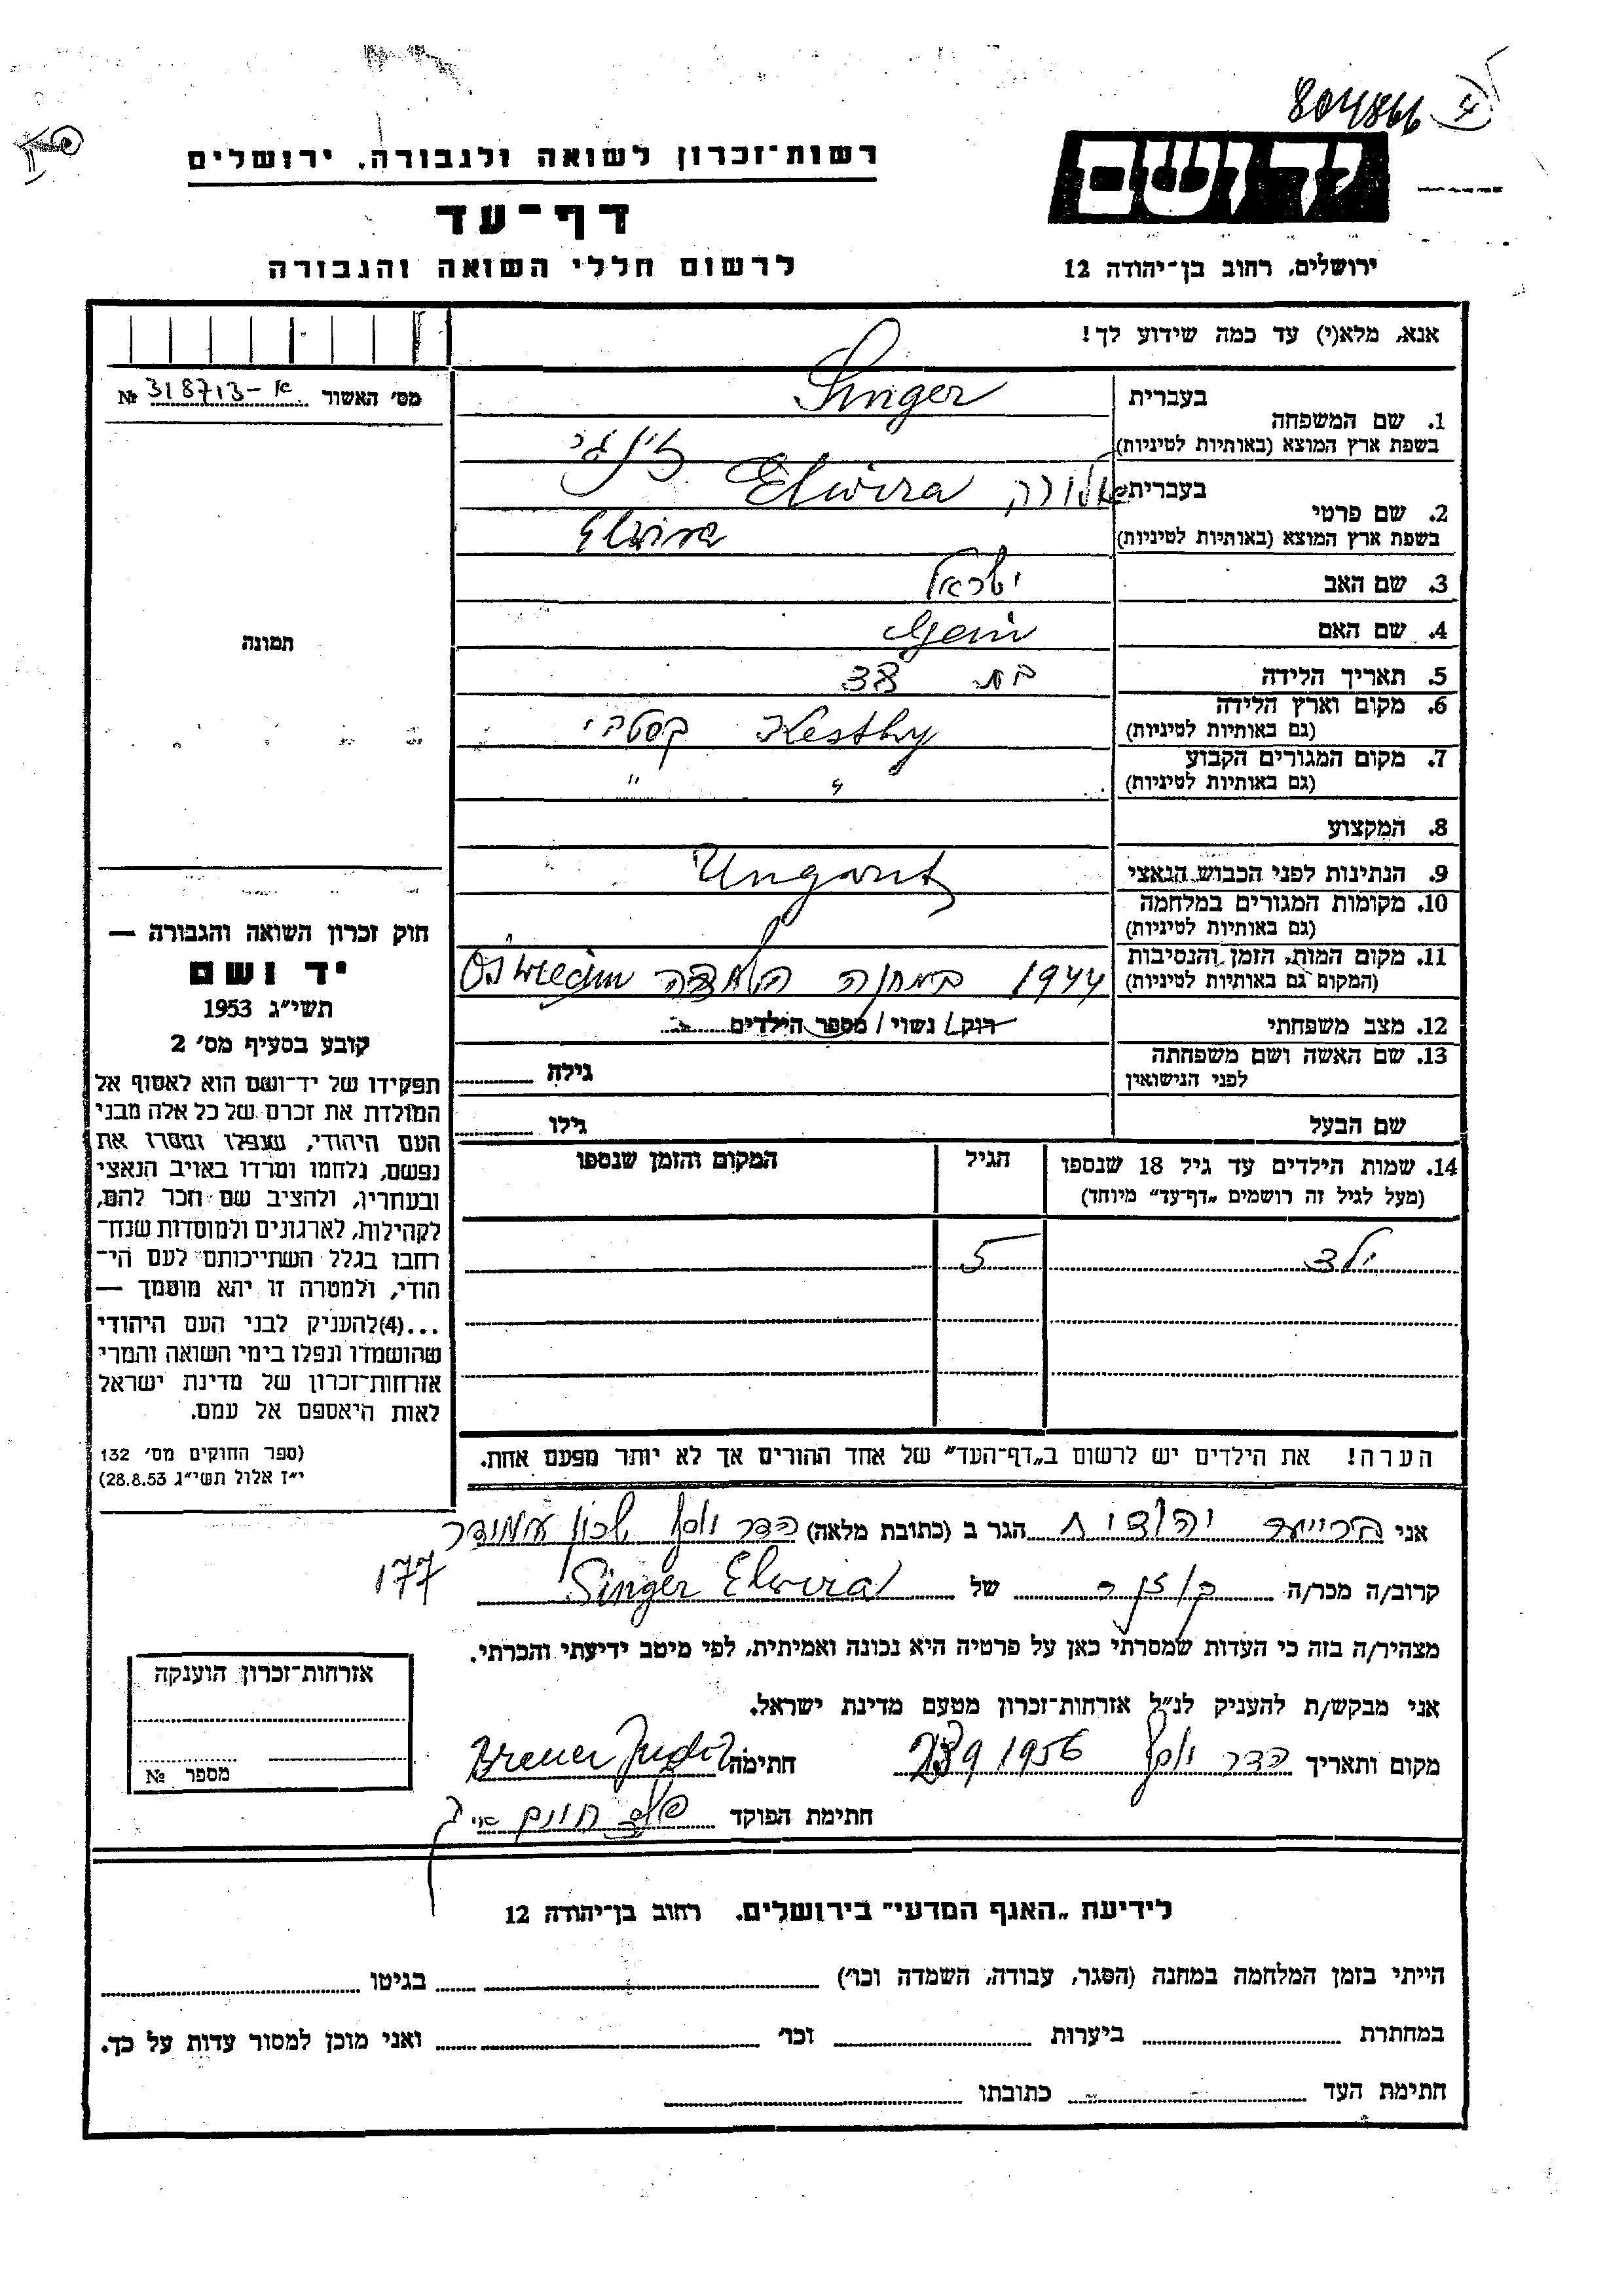 804866 4
יד ושם
רשות־זכרון לשואה ולגבורה, ירושלים
דף־עד
לרשום חללי השואה והגבורה
ירושלים, רחוב בן־יהודה 12
אנא, מלא(י) עד כמה שידוע לך!
מס׳ האשור № 318713-א
1. שם המשפחה
בעברית Singer
בשפת ארץ המוצא (באותיות לטיניות) זינגר
2. שם פרטי
בעברית Elwira
בשפת ארץ המוצא (באותיות לטיניות) Elwira
3. שם האב ישראל
4. שם האם
5. תאריך הלידה בת 38
6. מקום וארץ הלידה Kesthy
(גם באותיות לטיניות)
7. מקום המגורים הקבוע " "
(גם באותיות לטיניות)
8. המקצוע
9. הנתינות לפני הכבוש הנאצי
10. מקומות המגורים במלחמה
(גם באותיות לטיניות)
11. מקום המות, הזמן והנסיבות 1944 במחנה השמדה
(המקום גם באותיות לטיניות)
12. מצב משפחתי רוק/ נשוי / מספר הילדים
13. שם האשה ושם משפחתה
לפני הנישואין
גילה
שם הבעל גילו
14. שמות הילדים עד גיל 18 שנספו הגיל המקום והזמן שנספו
(מעל לגיל זה רושמים „דף־עד״ מיוחד)
ילד 5
הערה! את הילדים יש לרשום ב„דף־העד״ של אחד ההורים אך לא יותר מפעם אחת.
תמונה
חוק זכרון השואה והגבורה —
יד ושם
תשי״ג 1953
קובע בסעיף מס׳ 2
תפקידו של יד־ושם הוא לאסוף אל
המולדת את זכרם של כל אלה מבני
העם היהודי, שנפלו ומסרו את
נפשם, נלחמו ומרדו באויב הנאצי
ובעוזריו, ולהציב שם וזכר להם,
לקהילות, לארגונים ולמוסדות שנח־
רבו בגלל השתייכותם לעם הי־
הודי, ולמטרה זו יהא מוסמך —
...(4)להעניק לבני העם היהודי
שהושמדו ונפלו בימי השואה והמרי
אזרחות־זכרון של מדינת ישראל
לאות היאספם אל עמם.
(ספר החוקים מס׳ 132
י״ז אלול תשי״ג 28.8.53)
אני ברייער יהודית הגר ב (כתובת מלאה) הדר יוסף שכון עמידר
177
קרוב/ה מכר/ה של Singer Elwira
מצהיר/ה בזה כי העדות שמסרתי כאן על פרטיה היא נכונה ואמיתית, לפי מיטב ידיעתי והכרתי.
אני מבקש/ת להעניק לנ״ל אזרחות־זכרון מטעם מדינת ישראל.
מקום ותאריך הדר יוסף 1956 חתימה Breuer Judit
חתימת הפוקד
אזרחות־זכרון הוענקה
מספר №
לידיעת „האגף המדעי״ בירושלים, רחוב בן־יהודה 12
הייתי בזמן המלחמה במחנה (הסגר, עבודה, השמדה וכו׳) בגיטו
במחתרת ביערות וכו׳ ואני מוכן למסור עדות על כך.
חתימת העד כתובתו